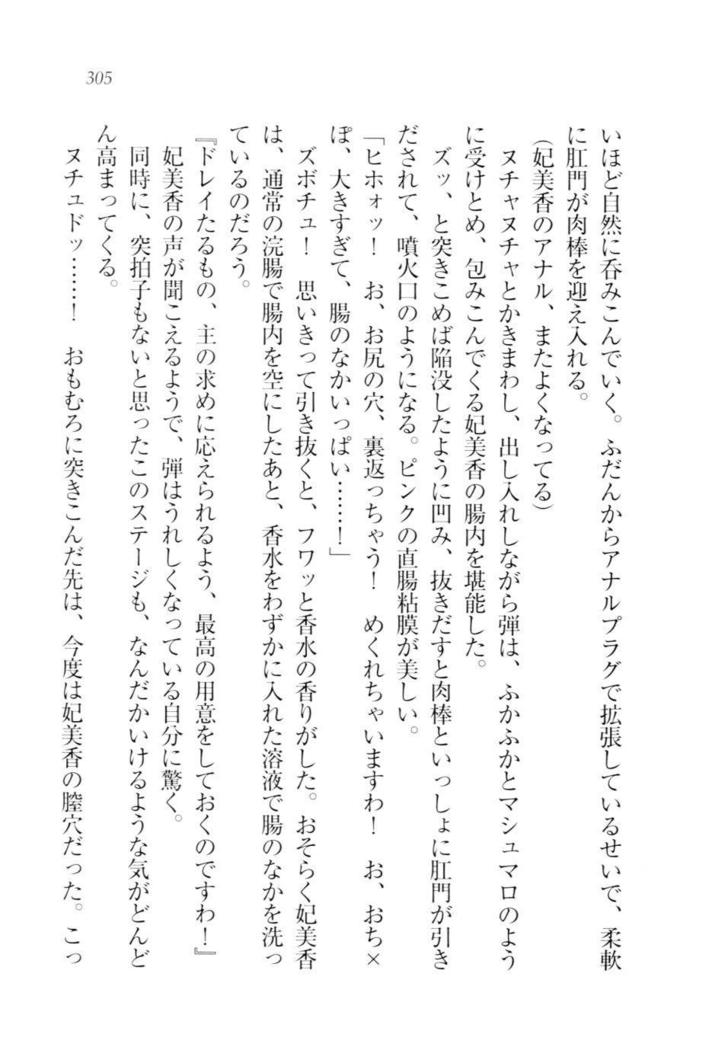 305
いほど自然に呑みこんでいく。ふだんからアナルプラグで拡張しているせいで、柔軟
に肛門が肉棒を迎え入れる。
(妃美香のアナル、またよくなってる)
ヌチャヌチャとかきまわし、出し入れしながら弾は、ふかふかとマシュマロのよう
に受けとめ、包みこんでくる妃美香の腸内を堪能した。
ズッ、と突きこめば陥没したように凹み、抜きだすと肉棒といっしょに肛門が引き
だされて、噴火口のようになる。ピンクの直腸粘膜が美しい。
「ヒホォッ！　お、お尻の穴、裏返っちゃう！　めくれちゃいますわ！　お、おち×
ぽ、大きすぎて、腸のなかいっぱい……！」
ズボチュ！　思いきって引き抜くと、フワッと香水の香りがした。おそらく妃美香
は、通常の浣腸で腸内を空にしたあと、香水をわずかに入れた溶液で腸のなかを洗っ
ているのだろう。
『ドレイたるもの、主の求めに応えられるよう、最高の用意をしておくのですわ！』
妃美香の声が聞こえるようで、弾はうれしくなっている自分に驚く。
同時に、突拍子もないと思ったこのステージも、なんだかいけるような気がどんど
ん高まってくる。
ヌチュドッ……！　おもむろに突きこんだ先は、今度は妃美香の膣穴だった。こっ